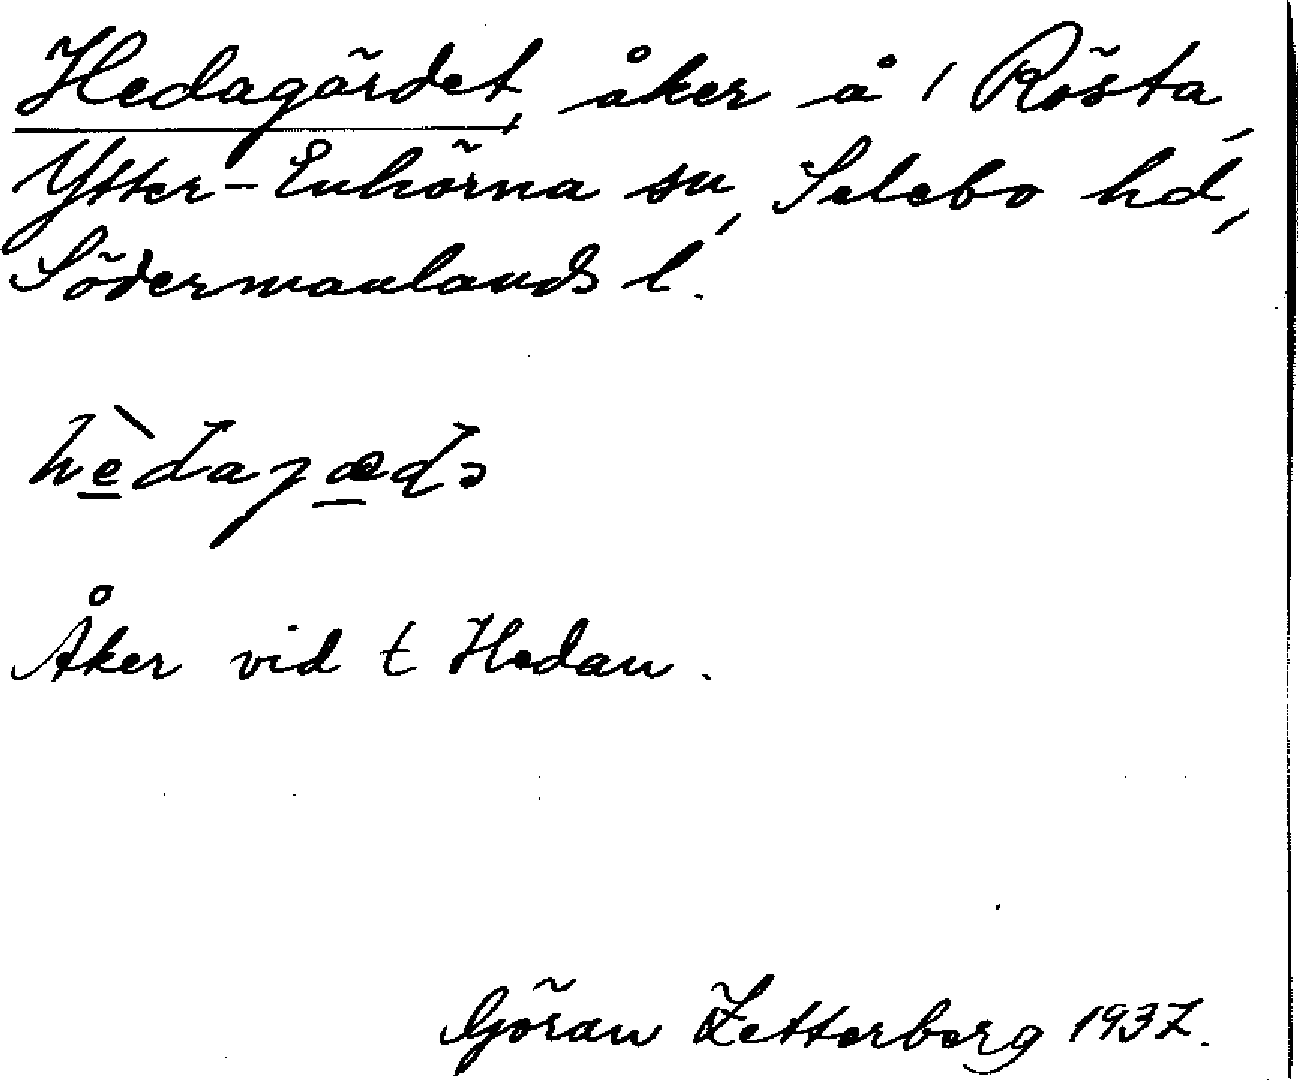 Hedagärdet, åker å 1 Rösta,
Ytter-Enhörna sn, Selebo hd,
Södermanlands l.
hèdaɟæɖə
Åker vid t Hedan.
Göran Zetterberg 1937.